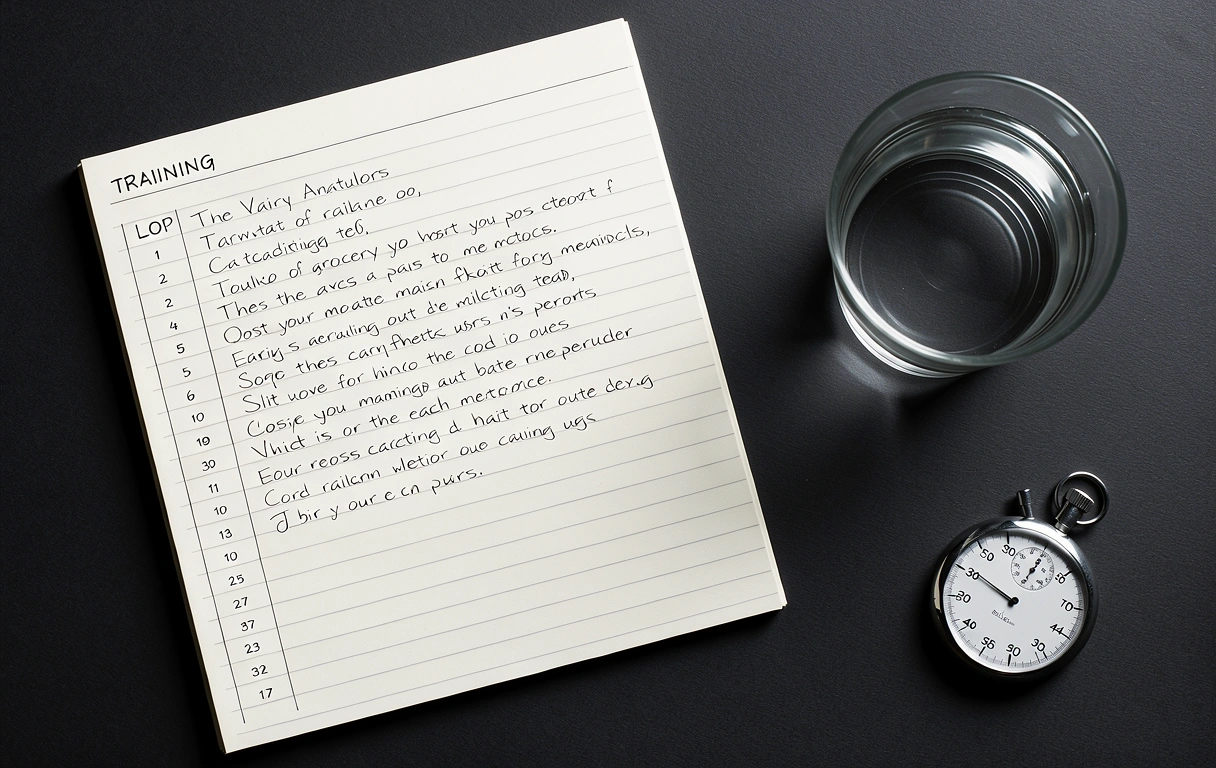 TRAIINING
LOP
The Vairy Anatulors
1
Tarwtat of railane oo,
2
Catcaditiingg te6.
2
Toulko of grocery yo hosrt you pos cteovt f
4
Thes the avcs a pais to me mctocs.
5
Oost your moattc maisn fkatt forg meariocls,
5
Eariy s aeraling out d'e milcting tead,
6
Sorgo thes carry fhettk usrs n's perorts
10
Slit uove for hinco the cod io oues
19
Closije you mamingo aut bate rne peruder
30
Vhict is or the each mertomce.
11
Eour reoss carcting d hait tor oute dev.g
10
Cord railcnn wletior ouo cauing ugs
13
J bir y our e cn purs.
10
25
27
37
23
32
17
50
30
30
30
40
55
30
30
44
10